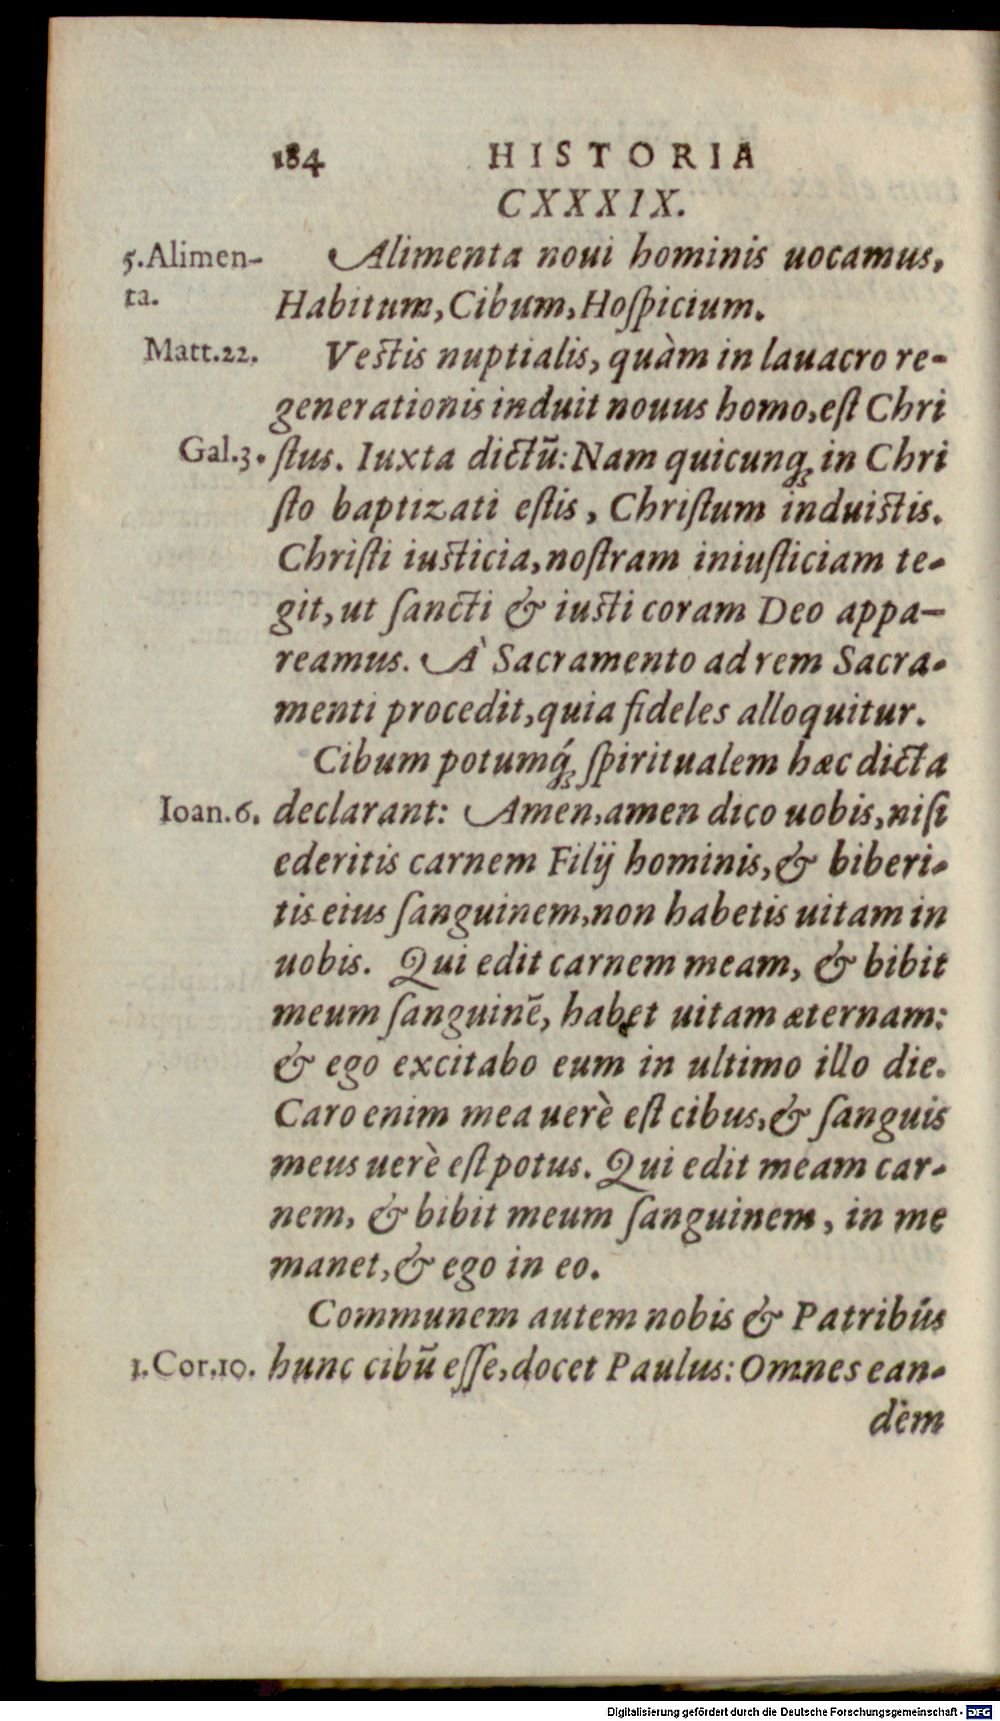 184 HISTORIA
CXXXIX.
5.Alimen- Alimenta noui hominis uocamus,
ta. Habitum, Cibum, Hoſpicium.
Matt.22. Veſtis nuptialis, quàm in lauacro re-
generationis induit nouus homo, eſt Chri
Gal.3. ſtus. Iuxta dictū: Nam quicunq; in Chri
ſto baptizati eſtis, Chriſtum induiſtis.
Chriſti iuſticia, noſtram iniuſticiam te-
git, ut ſancti & iuſti coram Deo appa-
reamus. À Sacramento ad rem Sacra-
menti procedit, quia fideles alloquitur.
Cibum potumq́; ſpiritualem hæc dicta
Ioan.6. declarant: Amen, amen dico uobis, niſi
ederitis carnem Filij hominis, & biberi-
tis eius ſanguinem, non habetis uitam in
uobis. Qui edit carnem meam, & bibit
meum ſanguinē, habet uitam æternam:
& ego excitabo eum in ultimo illo die.
Caro enim mea uerè eſt cibus, & ſanguis
meus uerè eſt potus. Qui edit meam car-
nem, & bibit meum ſanguinem, in me
manet, & ego in eo.
Communem autem nobis & Patribus
1.Cor.10. hunc cibū eſſe, docet Paulus: Omnes ean-
dem
Digitalisierung gefördert durch die Deutsche Forschungsgemeinschaft - DFG